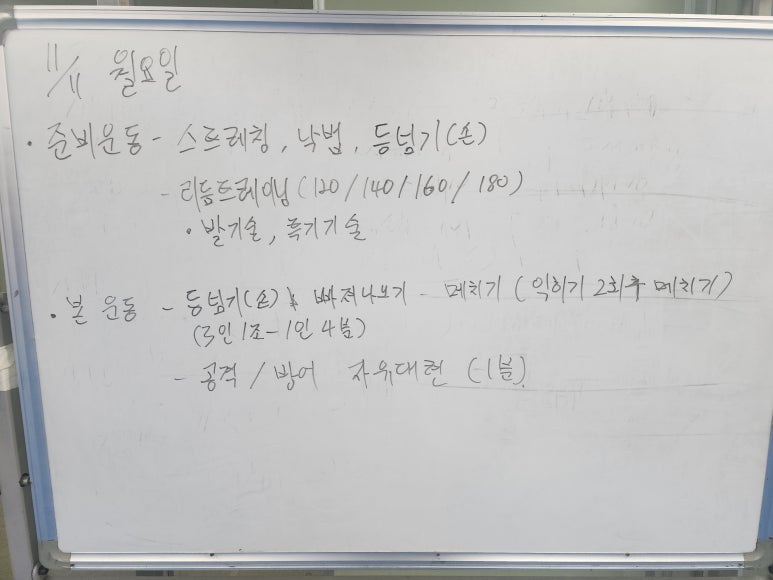 11/11 월요일
• 준비운동 - 스트레칭, 낙법, 등넘기(손)
- 리듬트레이닝 (120/140/160/180)
• 발기술, 흑기기술
• 본 운동 - 등넘기(손) 빠져나오기 - 메치기 (익히기 2회후 메치기)
(3인1조-1인 4분)
- 공격/방어 자유대련 (-1분)